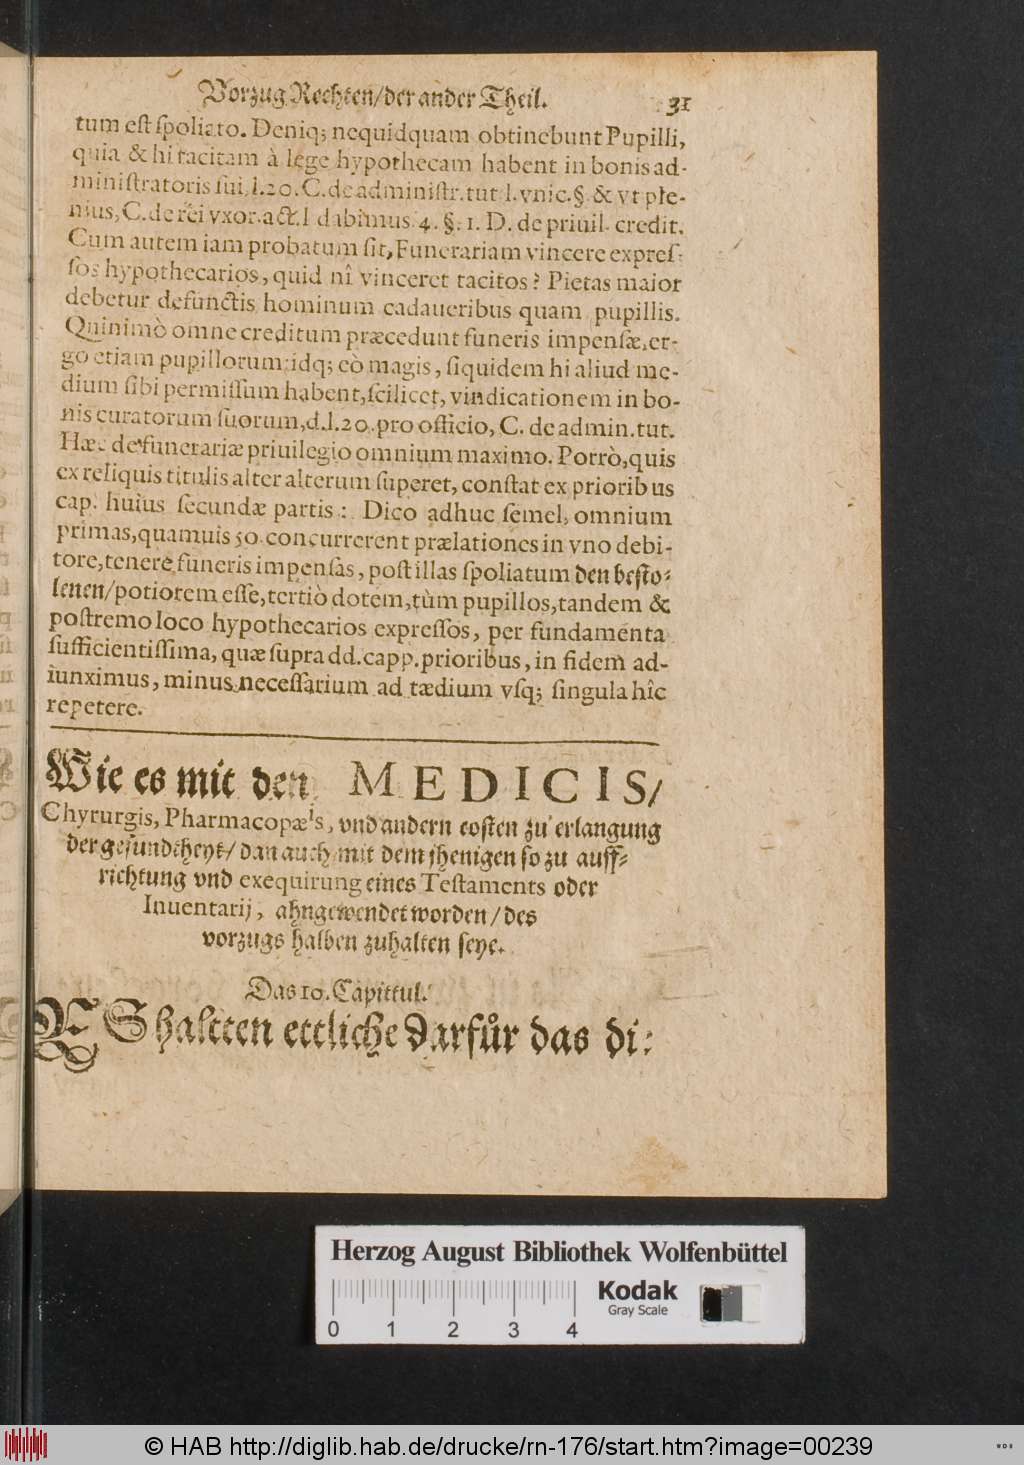 Vorzug Rechten/der ander Theil. 31
tum eſt ſpoliato. Deniq; nequidquam obtinebunt Pupilli,
quia & hi tacitam à lege hypothecam habent in bonis ad-
miniſtratoris ſui, l.20. C. de adminiſtr. tut. l. vnic. §. & vt ple-
nius, C. de rei vxor. act. l. dabimus 4. §. 1. D. de priuil. credit.
Cum autem iam probatum ſit, Funerariam vincere expreſ-
ſos hypothecarios, quid nî vinceret tacitos? Pietas maior
debetur defunctis hominum cadaueribus quam pupillis.
Quinimò omne creditum præcedunt funeris impenſæ, er-
go etiam pupillorum: idq; eò magis, ſiquidem hi aliud me-
dium ſibi permiſſum habent, ſcilicet, vindicationem in bo-
nis curatorum ſuorum, d.l.20. pro officio, C. de admin. tut.
Hæc de funerariæ priuilegio omnium maximo. Porrò, quis
ex reliquis titulis alter alterum ſuperet, conſtat ex prioribus
cap. huius ſecundæ partis: Dico adhuc ſemel, omnium
primas, quamuis 50. concurrerent prælationes in vno debi-
tore, tenere funeris impenſas, poſt illas ſpoliatum den beſto-
lenen/potiorem eſſe, tertiò dotem, tùm pupillos, tandem &
poſtremo loco hypothecarios expreſſos, per fundamenta
ſufficientiſſima, quæ ſupra dd. capp. prioribus, in fidem ad-
iunximus, minus neceſſarium ad tædium vſq; ſingula hîc
repetere.
Wie es mit den MEDICIS/
Chyrurgis, Pharmacopæis, vnd andern coſten zu erlangung
der geſundtheyt/ dan auch mit dem jhenigen ſo zu auff-
richtung vnd exequirung eines Teſtaments oder
Inuentarij, ahngewendet worden/des
vorzugs halben zuhalten ſeye.
Das 10. Capittul.
ES haltten ettliche darfür das di-
Herzog August Bibliothek Wolfenbüttel
Kodak
Gray Scale
0 1 2 3 4
© HAB http://diglib.hab.de/drucke/rn-176/start.htm?image=00239